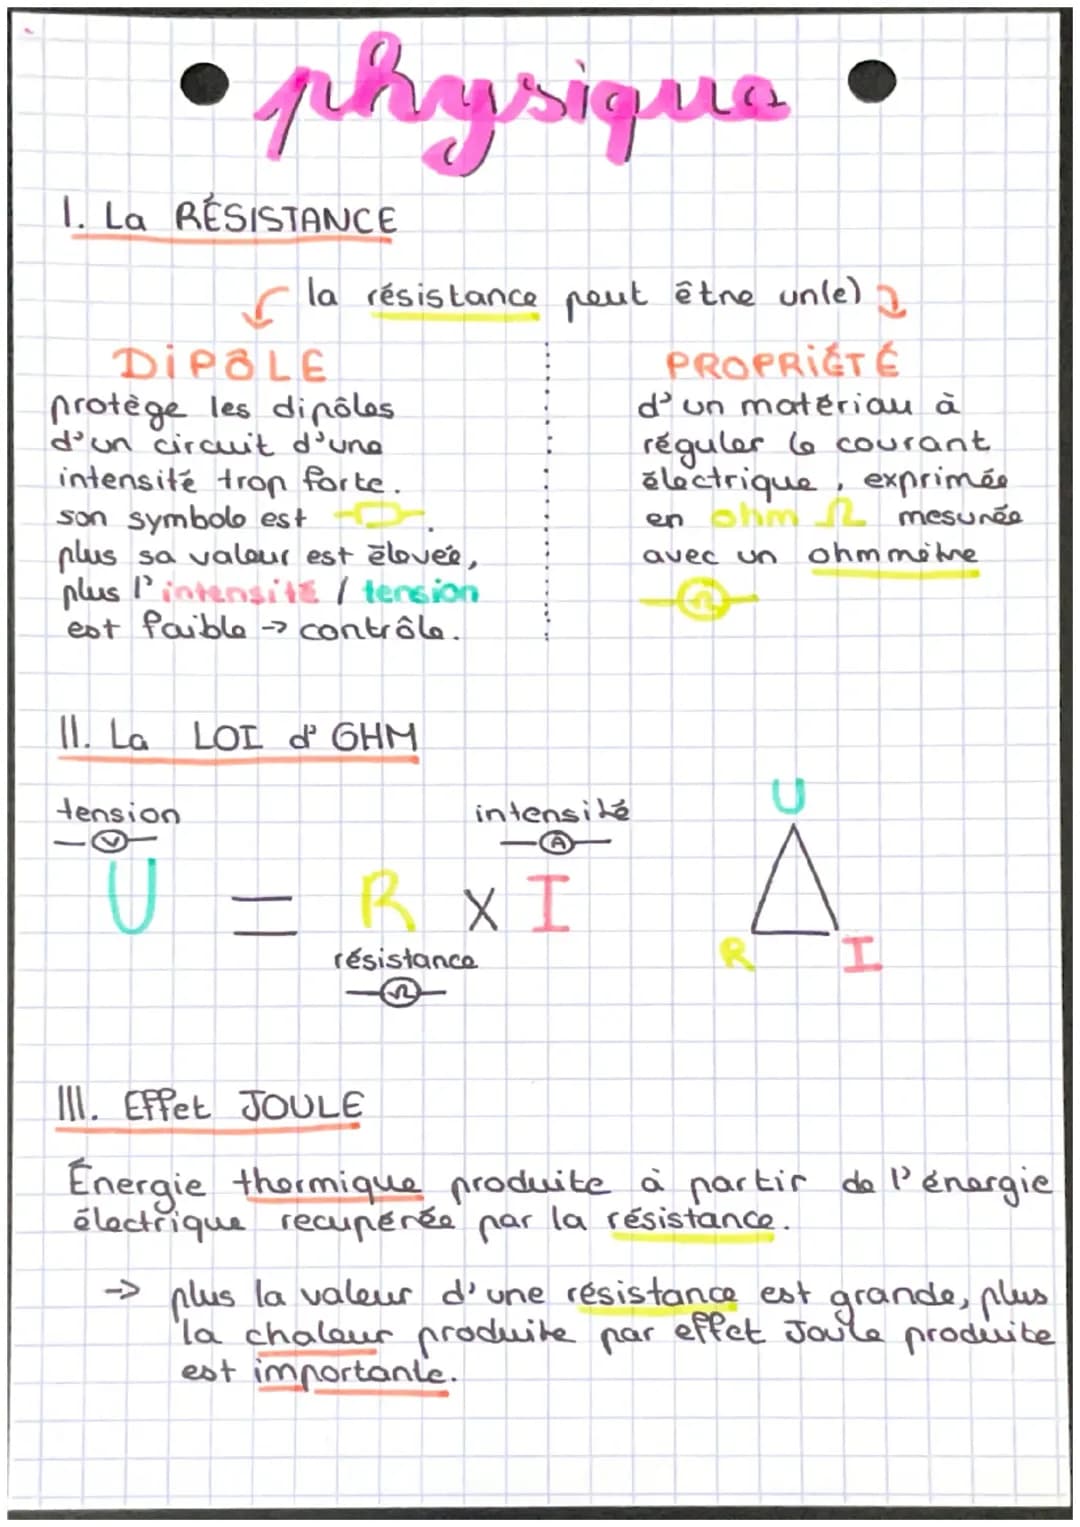 • physique •
I. La RÉSISTANCE
la résistance peut être un(e)
DIPÔLE
protège les dipôles
d'un circuit d'une
intensité trop forte.
son symbole est
plus sa valeur est élevée,
plus l'intensité / tension
est faible → contrôle.
PROPRIÉTÉ
d'un matériau à
réguler le courant
électrique, exprimée
en ohm Ω mesurée
avec un ohmmètre
Ω
II. La LOI d'OHM
tension
V
intensité
A
U = R X I
résistance
Ω
U
R I
III. Effet JOULE
Énergie thermique produite à partir de l'énergie
électrique recupérée par la résistance.
→ plus la valeur d'une résistance est grande, plus
la chaleur produite par effet Joule produite
est importante.